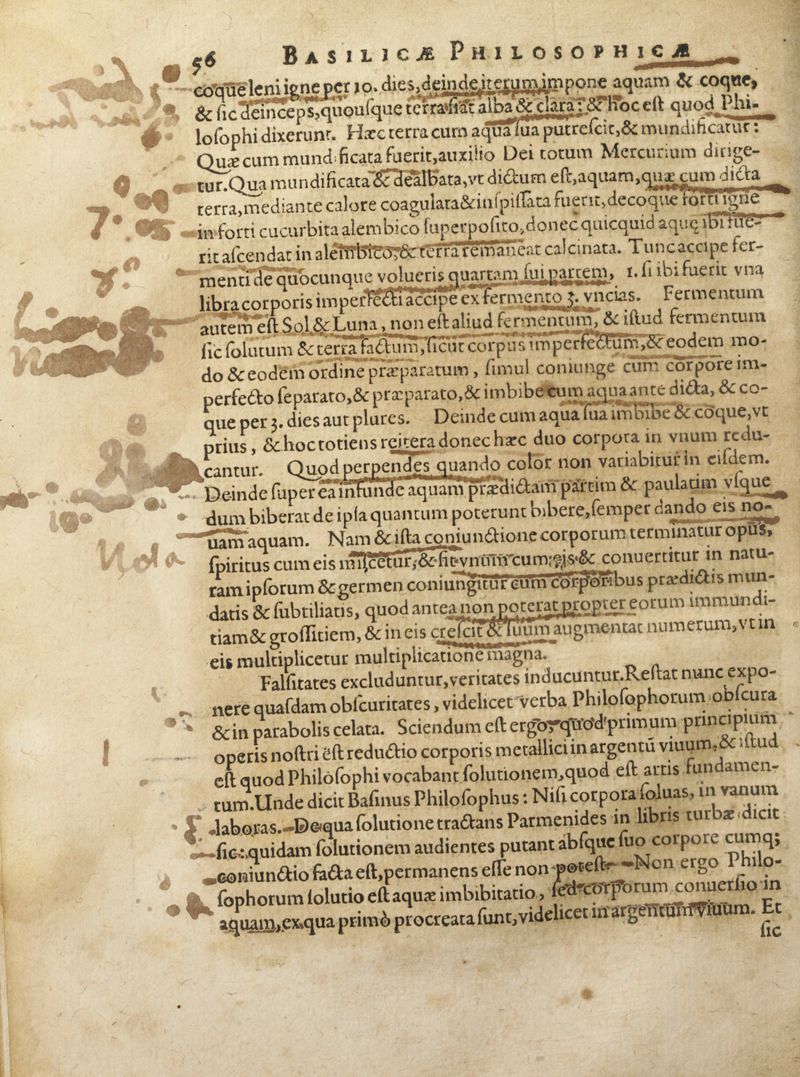 56 BASILICÆ PHILOSOPHICÆ
coque leni igne per 10. dies, deinde iterum impone aquam & coque,
& ſic deinceps, quouſque terra fiat alba & clara: & hoc eſt quod Phi-
loſophi dixerunt. Hæc terra cum aqua ſua putreſcit, & mundificatur:
Quæ cum mundificata fuerit, auxilio Dei totum Mercurium dirige-
tur. Qua mundificata & dealbata, vt dictum eſt, aquam, quæ cum dicta
terra, mediante calore coagulata & inſpiſſata fuerit, decoque forti igne
in forti cucurbita alembico ſuperpoſito, donec quicquid aquę ibi fue-
rit aſcendat in alembico, & terra remaneat calcinata. Tunc accipe fer-
menti de quocunque volueris quartam ſui partem, 1. ſi ibi fuerit vna
libra corporis imperfecti accipe ex fermento 3. vncias. Fermentum
autem eſt Sol & Luna, non eſt aliud fermentum, & iſtud fermentum
ſic ſolutum & terra factum, ſicut corpus imperfectum, & eodem mo-
do & eodem ordine præparatum, ſimul coniunge cum corpore im-
perfecto ſeparato, & præparato, & imbibe cum aqua ante dicta, & co-
que per 3. dies aut plures. Deinde cum aqua ſua imbibe & coque, vt
prius, & hoc totiens reitera donec hæc duo corpora in vnum redu-
cantur. Quod perpendes quando color non variabitur in eiſdem.
Deinde ſuper ea infunde aquam prædictam partim & paulatim vſque
dum biberat de ipſa quantum poterunt bibere, ſemper dando eis no-
uam aquam. Nam & iſta coniunctione corporum terminatur opus,
Nota
ſpiritus cum eis miſcetur, & fit vnum cum ejs & conuertitur in natu-
ram ipſorum & germen coniungitur cum corporibus prædictis mun-
datis & ſubtiliatis, quod antea non poterat propter eorum immundi-
tiam & groſſitiem, & in eis creſcit & ſuum augmentat numerum, vt in
eis multiplicetur multiplicatione magna.
Falſitates excluduntur, veritates inducuntur. Reſtat nunc expo-
nere quaſdam obſcuritates, videlicet verba Philoſophorum obſcura
& in parabolis celata. Sciendum eſt ergo, quod primum principium
operis noſtri eſt reductio corporis metallici in argentū viuum, & iſtud
eſt quod Philoſophi vocabant ſolutionem, quod eſt artis fundamen-
tum. Unde dicit Baſinus Philoſophus: Niſi corpora ſoluas, in vanum
laboras. De qua ſolutione tractans Parmenides in libris turbæ dicit
ſic: quidam ſolutionem audientes putant abſque ſuo corpore cumq;
coniunctio facta eſt, permanens eſſe non poteſt. Non ergo Philo-
ſophorum ſolutio eſt aquæ imbibitatio, ſed corporum conuerſio in
aquam, ex qua primò procreata ſunt, videlicet in argentum viuum. Et
ſic